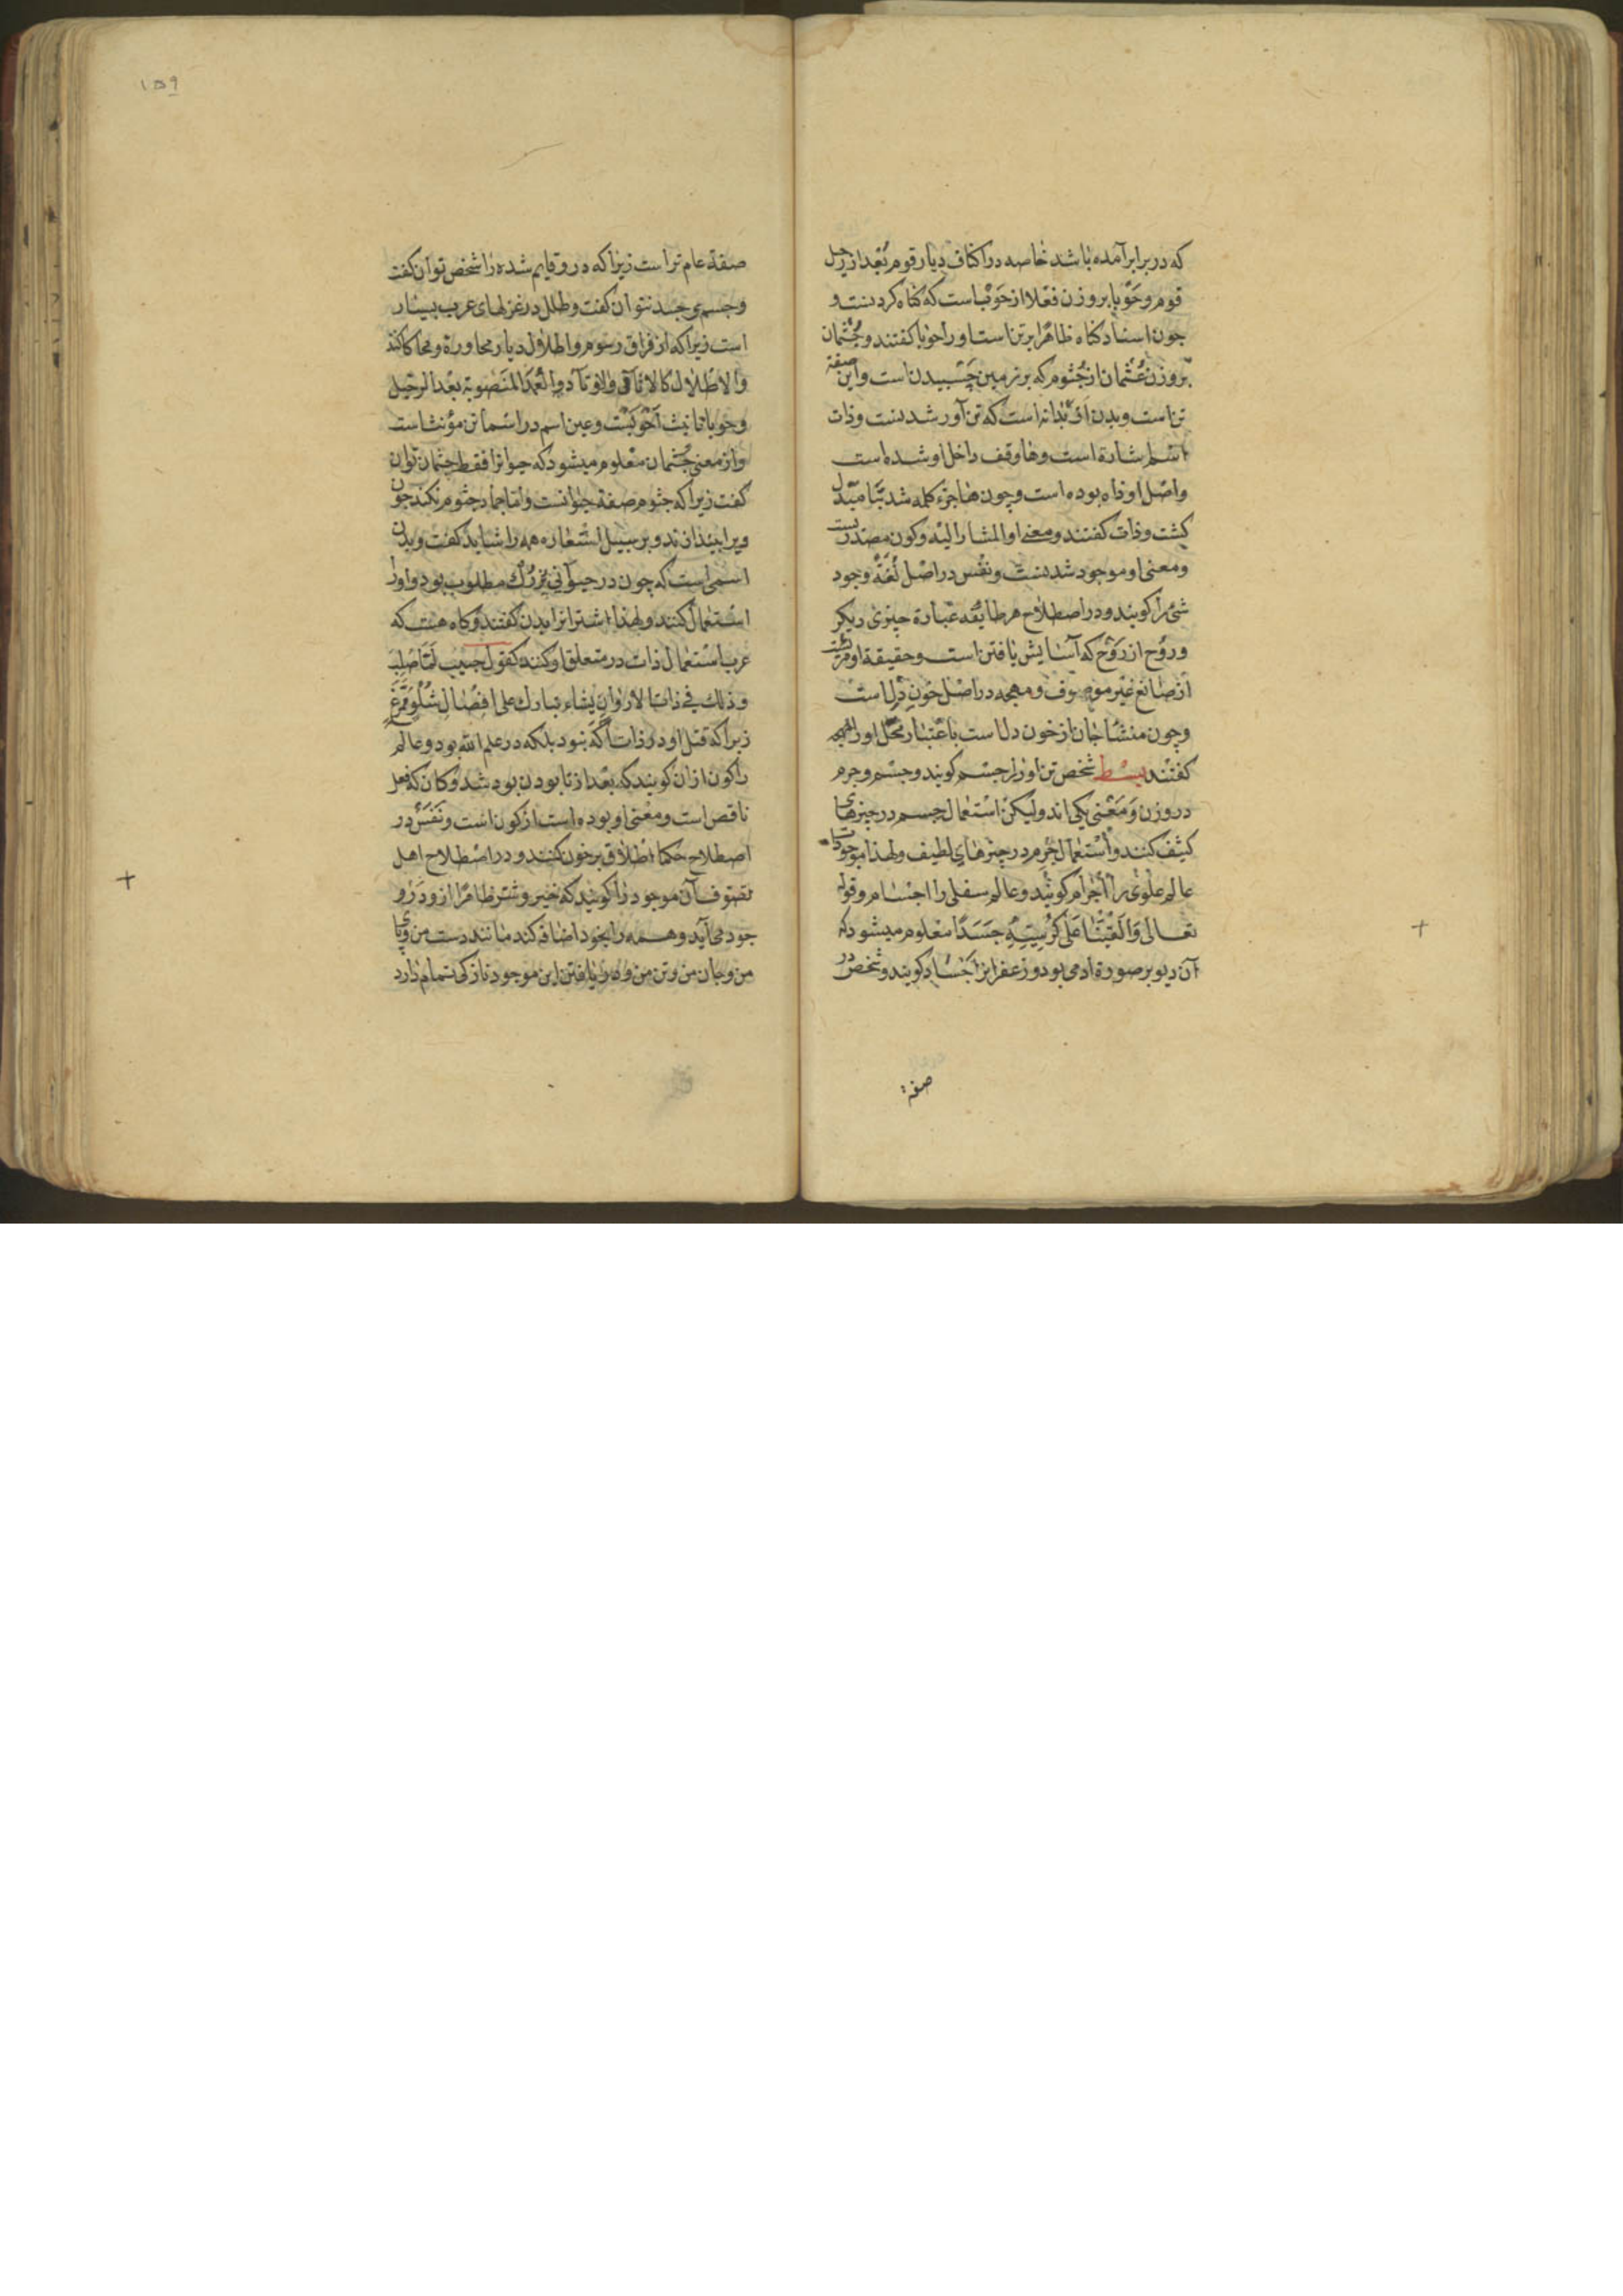 که در برابر آمده باشد خاصه در اکناف دیار قوم بعد از رحل
قوم و حوبا بر وزن فعلا از حوبست که کناه کردنست و
جون اسناد کناه ظاهرا بر تن است او را حوبا کفتند و جثمان
بر وزن عثمان از جثوم که بر زمین چسبیدن است و این صفة
تن است و بدن از بدانه است که تن آور شدنست و ذات
اسم اشارة است و ها وقف داخل او شده است
واصل او ذاه بوده است و چون ها جزء کلمه شد بتا مبدل
کشت و ذات کفتند و معنی او المشار الیه و کون مصدرست
ومعنی او موجود شدنست و نفس در اصل لغة وجود
شئ را کویند و در اصطلاح هر طایفه عبارة چیزی دیکر
و روح از روح که آسایش یافتن است و حقیقة او
از صانع غیر موصوف و مهجه در اصل خون دل است
و چون منشا جان از خون دلست باعتبار محل او را مهجه
کفتند بسط شخص تن اورا جسم کویند و جسم و جرم
در وزن و معنی یکی اند و لیکن استعمال جسم در چیزهای
کثیف کنند و استعمال جرم در چیزهای لطیف و لهذا موجودات
عالم علوی را اجرام کویند و عالم سفلی را اجسام و قوله
تعالی وَاَلقَینَا عَلی کُرسِیِّهِ جَسَدًا معلوم میشود که
آن دیو بر صورة ادمی بود و زعفرانرا جساد کویند و شخص در
صفة
۱۵۹
صفة عام تر است زیرا که در و قایم شده را شخص توان کفت
وجسم و جسد نتوان کفت و طلل در غزلهای عرب بسیار
است زیرا که از فراق رسوم و اطلال دیار محاورة و محاکا کند
والاطلال کالاثافی والاوتاد والعمد المنصوبة بعد الرحیل
وحوبا تانیث احوبست و عین اسم در اسما تن مؤنث است
و از معنی جثمان معلوم میشود که حیوانرا فقط جثمان توان
کفت زیرا که جثوم صفة حیوانست و اما جماد جثوم نکند جون
ویرا بیندازند و بر سبیل استعاره همه را شاید کفت و بدن
اسمی است که چون در حیوانی بزرک مطلوب بود او را
استعمال کنند و لهذا اشترانرا بدن کفتند و کاه هست که
عرب استعمال ذات در متعلق او کنند کقول حبیب لما صلب
و ذلک فی ذات الاله وان یشاء یبارک علی اوصال شلو ممزع
زیرا که قتل او در ذات اله نبود بلکه در علم الله بود و عالم
را کون از ان کویند که بعد از نابودن بود شد و کان که فعل
ناقص است و معنی او بوده است از کون است و نفس در
اصطلاح حکما اطلاق بر خون کنند و در اصطلاح اهل
تصوف آن موجود را کویند که خیر و شر ظاهرا از و در و
جود می آید و همه را بخود اضافه کند مانند دست من و پای
من و جان من و تن من و دریافتن این موجود نازکی تمام دارد